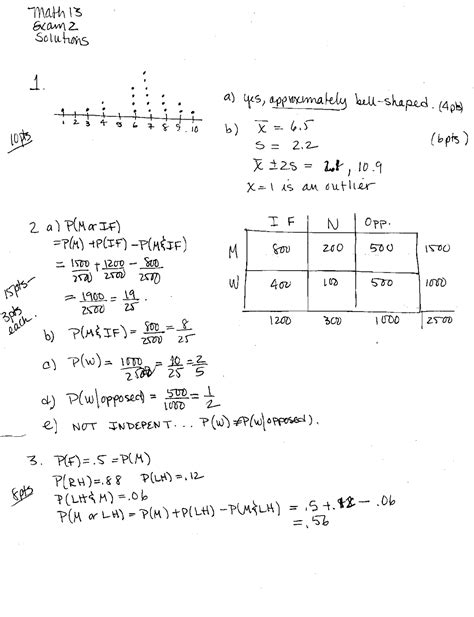 Math 13
Exam 2
Solutions
1.
1 2 3 4 5 6 7 8 9 10
10pts
a) yes, approximately bell-shaped. (4pts)
b) x̄ = 6.5 (6pts)
S = 2.2
x̄ ± 2S = 2.1, 10.9
x=1 is an outlier
2 a) P(M or IF)
= P(M) + P(IF) - P(M&IF)
= 1500/2500 + 1200/2500 - 800/2500
= 1900/2500 = 19/25.
15pts
3pts each.
b) P(M&IF) = 800/2500 = 8/25
c) P(W) = 1000/2500 = 10/25 = 2/5
d) P(W|opposed) = 500/1000 = 1/2
e) NOT INDEPENT... P(W) ≠ P(W|opposed).
IF N Opp.
M 800 200 500 1500
W 400 100 500 1000
1200 300 1000 2500
3. P(F) = .5 = P(M)
8pts
P(RH) = .88 P(LH) = .12
P(LH & M) = .06
P(M or LH) = P(M) + P(LH) - P(M&LH) = .5 + .12 - .06
= .56